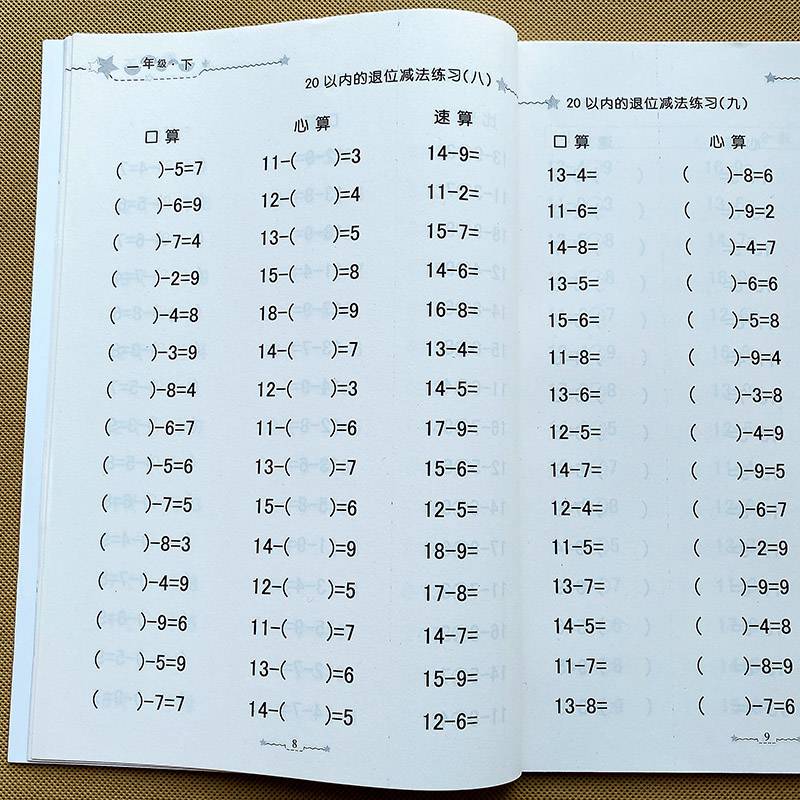 一年级·下
20以内的退位减法练习(八)
口算 心算 速算
( )-5=7 11-( )=3 14-9=
( )-6=9 12-( )=4 11-2=
( )-7=4 13-( )=5 15-7=
( )-2=9 15-( )=8 14-6=
( )-4=8 18-( )=9 16-8=
( )-3=9 14-( )=7 13-4=
( )-8=4 12-( )=3 14-5=
( )-6=7 11-( )=6 17-9=
( )-5=6 13-( )=7 15-6=
( )-7=5 15-( )=6 12-5=
( )-8=3 14-( )=9 18-9=
( )-4=9 12-( )=5 17-8=
( )-9=6 11-( )=7 14-7=
( )-5=9 13-( )=6 15-9=
( )-7=7 14-( )=5 12-6=
8
20以内的退位减法练习(九)
口算 心算
13-4= ( )-8=6
11-6= ( )-9=2
14-8= ( )-4=7
13-5= ( )-6=6
15-6= ( )-5=8
11-8= ( )-9=4
13-6= ( )-3=8
12-5= ( )-4=9
14-7= ( )-9=5
12-4= ( )-6=7
11-5= ( )-2=9
13-7= ( )-9=9
14-5= ( )-4=8
11-7= ( )-8=9
13-8= ( )-7=6
9